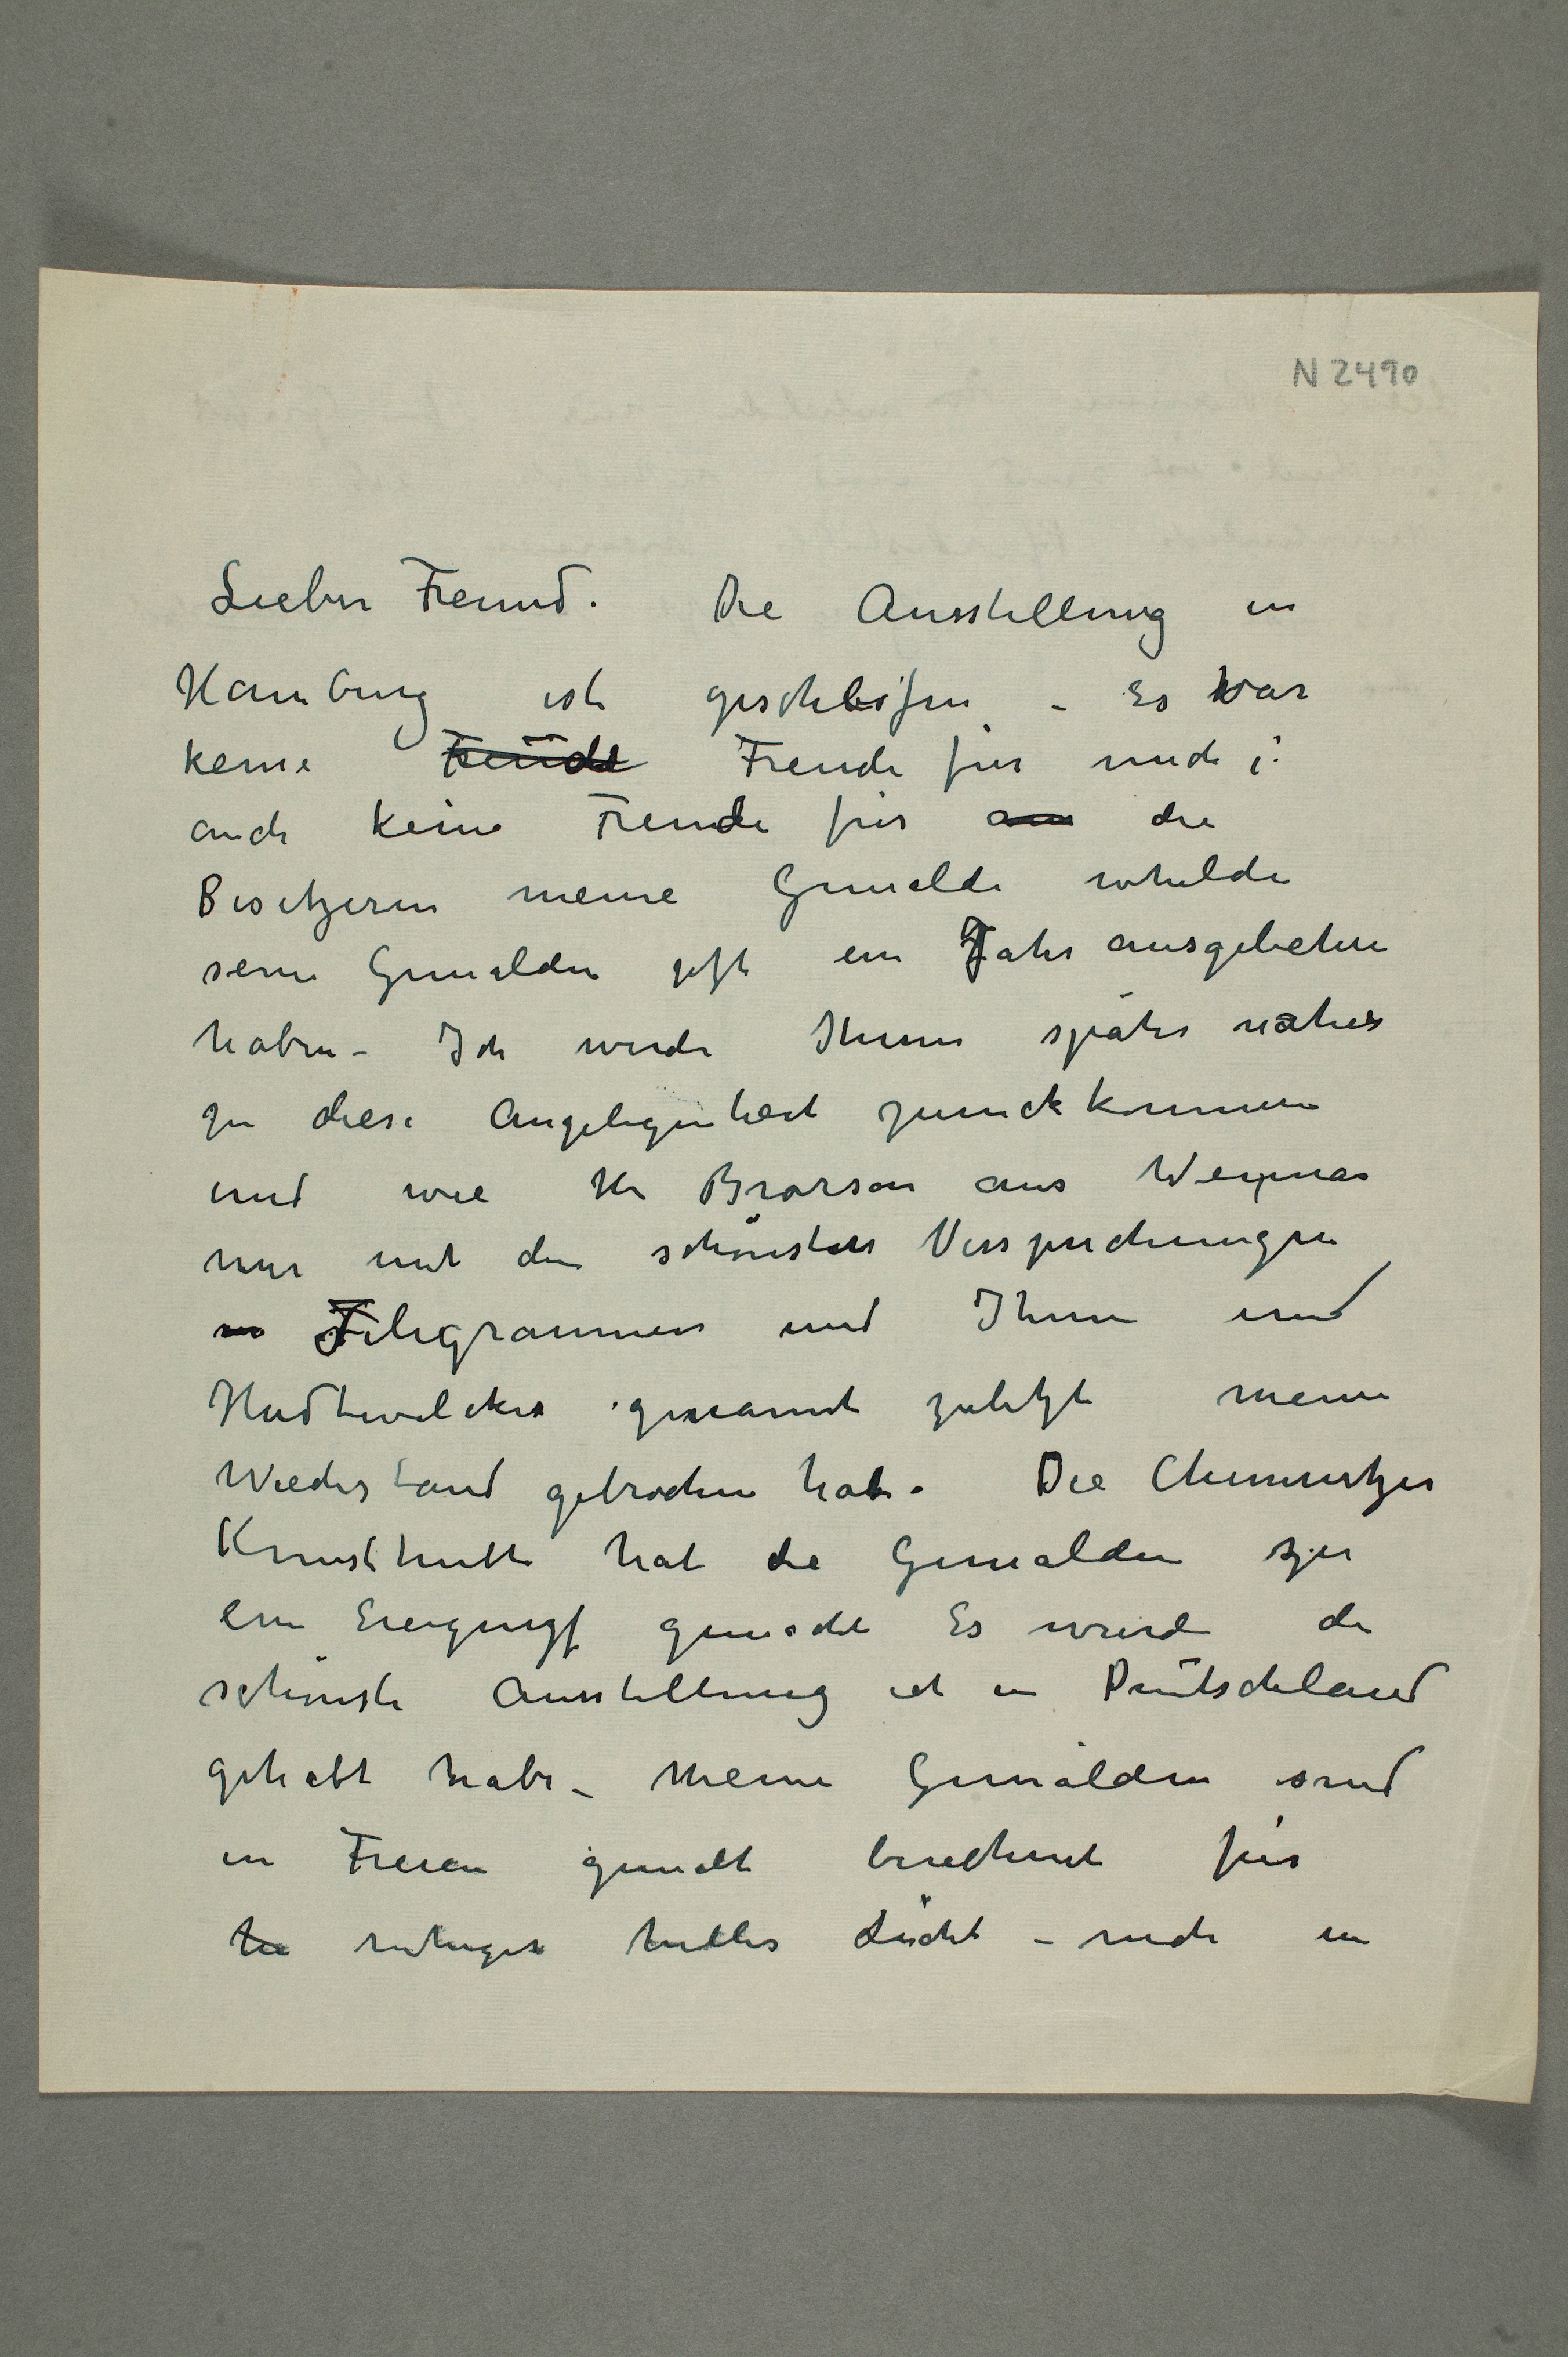 N 2490
Lieber Freund. Die Ausstellung in
Hamburg ist geschlossen – Es war
keine Freude Freude für mich;
auch keine Freude für die
Besitzeren meine Gemälde whelche
seine Gemälden jetzt ein Jahr ausgeliehen
haben – Ich werde Ihnen später näher
zu diese Angelegenheit zurückkommen
und wie Hr Brorson aus Weymar
mir mit den schönsten Versprechungen
in Telegrammen und Ihnen und
Hudtwalcker genannt zuletzt meine
Wiederstand gebrochen hat. Die Chemnitzer
Kunsthütte hat die Gemälden zu
ein Ereigniss gemacht Es wurde die
schönste Ausstellung ich in Deutschland
gehabt habe – Meine Gemälden sind
in Freien gemalt berechnet für
he ruhiges helles Licht – nicht in